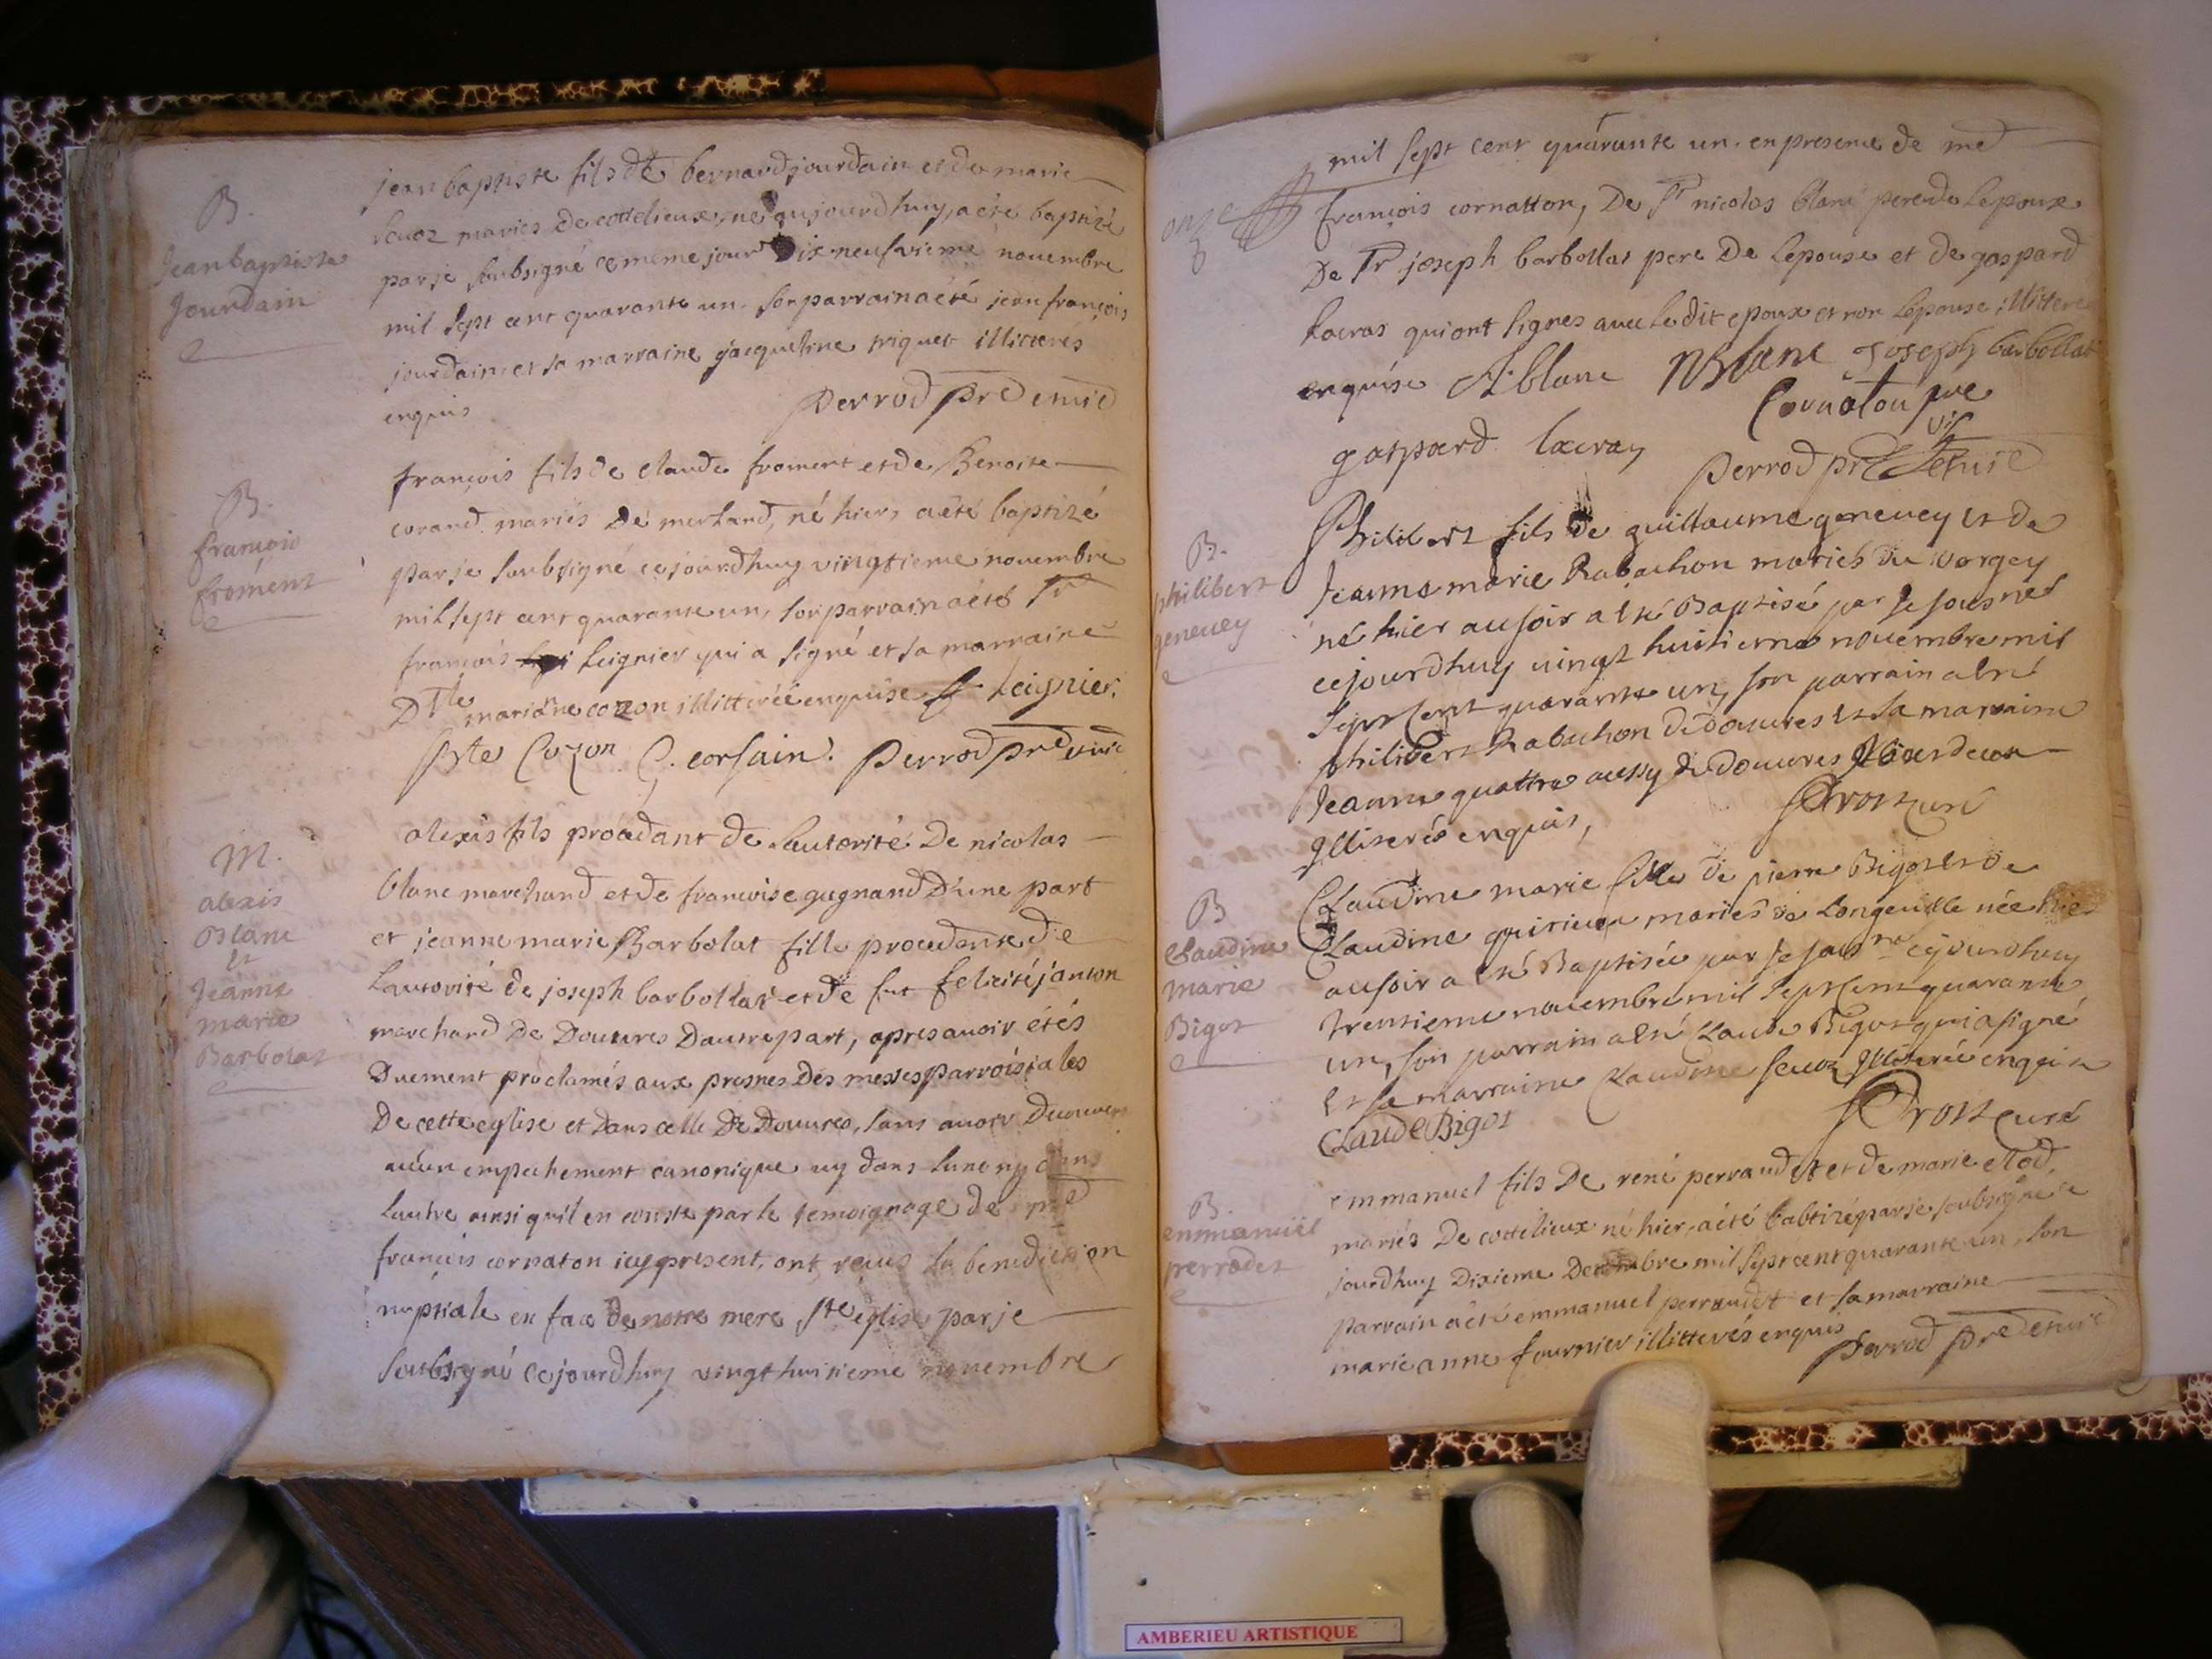 B.
Jean baptiste
Jourdain
jean baptiste fils de bernard jourdain et de marie
mariés de cottelieux, né aujourdhuy, a été baptizé
par je soubsigné ce meme jour dix neufvieme novembre
mil sept cent quarante un. son parrain a été jean françois
jourdain et sa marraine jacqueline piquet illitterés
enquis
Perrod pre
B.
françois
froment
françois fils de claude froment et de Benoite
corand mariés de merland, né hier, a été baptizé
par je soubsigné cejourdhuy vingtieme novembre
mil sept cent quarante un, son parrain a été Sr
françois Leignier qui a signé et sa marraine
Dlle mariane cozon illitterée enquise Leignier
Cozon C. corsain. Perrod pre
M.
alexis
Blanc
et
Jeanne
marie
Barbolat
alexis fils procedant de Lautorité De nicolas
blanc marchand et de francoise gugnand D'une part
et jeanne marie Barbolat fille procedante de
Lautorité de joseph barbollat et de fut felicité janton
marchand De Douvres Dautre part, apres avoir étés
Duement proclamés aux prosnes Des messes parroissiales
De cette eglise et Dans celle De Douvres, sans avoir Decouvert
aucun empechement canonique ny dans lune ny dans
lautre ainsi quil en conste par le temoignage de mre
françois cornaton icy present, ont reçus la benediction
nuptiale en face de notre mere ste eglise par je
soubsigné cejourdhuy vingt huitieme novembre
onze
mil sept cent quarante un. en presence de mre
françois cornatton, De Sr nicolas blanc pere de Lepoux
De Sr joseph barbollat pere De Lepouse et de gaspard
Lacras qui ont signés avec le dit epoux et non Lepouse illitterée
enquise A. blanc N Blanc Joseph barbollat
Cornaton pre
gaspard lacray
Perrod pre
B.
philibert
genevey
Philibert fils de guillaume genevey et de
Jeanne marie Rabachon mariés du vorgey
né hier au soir a esté Baptisé par je sousné
cejourdhuy vingt huitieme novembre mil
sept cent quarante un, son parrain a été
philibert Rabachon de douvres et sa marraine
Jeanne quattre aussy de douvres
Illiterés enquis,
curé
B
Claudine
marie
Bigot
Claudine marie fille de pierre Bigot et de
Claudine mariés de Longeville née hier
au soir a esté Baptisée par je sousné cejourdhuy
trentieme novembre mil sept cent quarante
un, son parrain a été Claude Bigot qui a signé
et sa marraine Claudine Illiterée enquise
Claude Bigot
curé
B.
emmanuël
perrodet
emmanuel fils De rené perraudet et de marie
mariés De cottelieux né hier, a été babtizé par je soubsigné ce
jourdhuy Dixieme Decembre mil sept cent quarante un, son
parrain a été emmanuel perraudet et sa marraine
marie anne fournier illitterés enquis
Perrod pre
AMBERIEU ARTISTIQUE